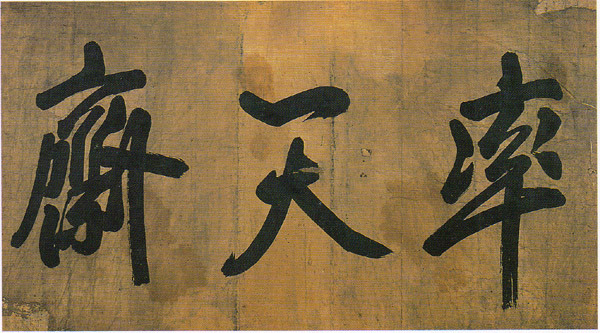 率天齋